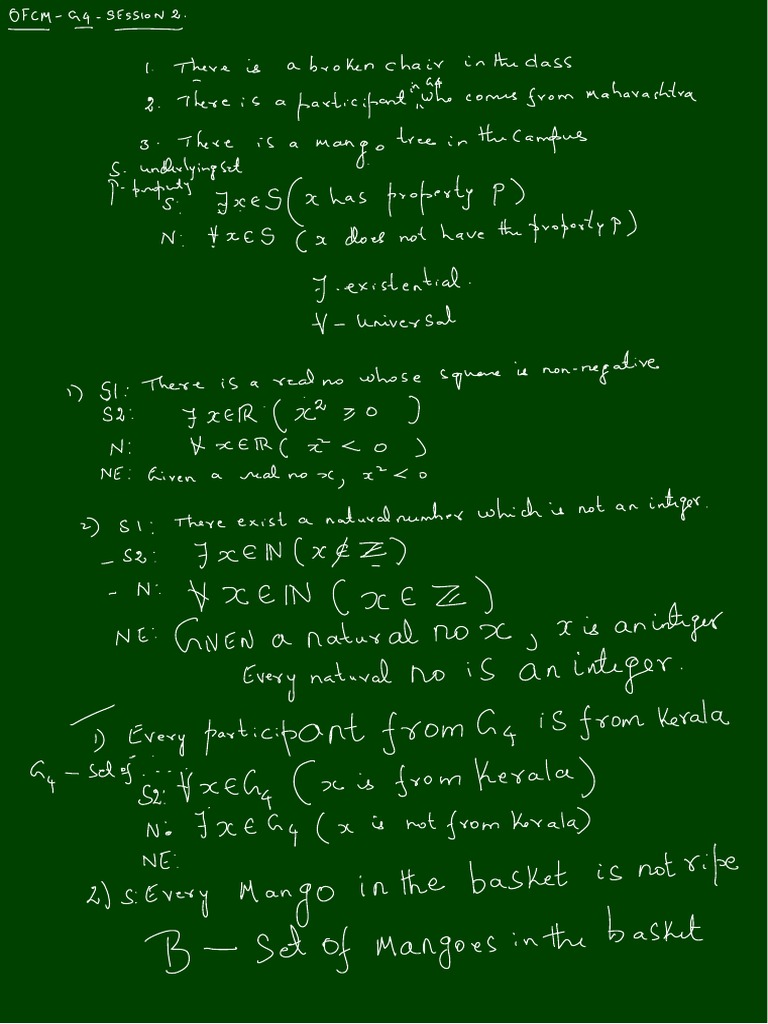 OFCM - G4 - SESSION 2.
1. There is a broken chair in the class
2. There is a participant in G4 who comes from Maharashtra
3. There is a mango tree in the Campus
S. underlying set
P - property
S: ∃x∈S (x has property P)
N: ∀x∈S (x does not have the property P)
∃ - existential.
∀ - Universal
1) S1: There is a real no whose square is non-negative
S2: ∃x∈ℝ (x² ≥ 0)
N: ∀x∈ℝ (x² < 0)
NE: Given a real no x, x² < 0
2) S1: There exist a natural number which is not an integer.
- S2: ∃x∈ℕ (x∉ℤ)
- N: ∀x∈ℕ (x∈ℤ)
NE: GIVEN a natural no x, x is an integer
Every natural no is an integer.
1) Every participant from G4 is from Kerala
G4 - Set of . . . . .
S2: ∀x∈G4 (x is from Kerala)
N: ∃x∈G4 (x is not from Kerala)
NE:
2) S: Every Mango in the basket is not ripe
B - Set of Mangoes in the basket